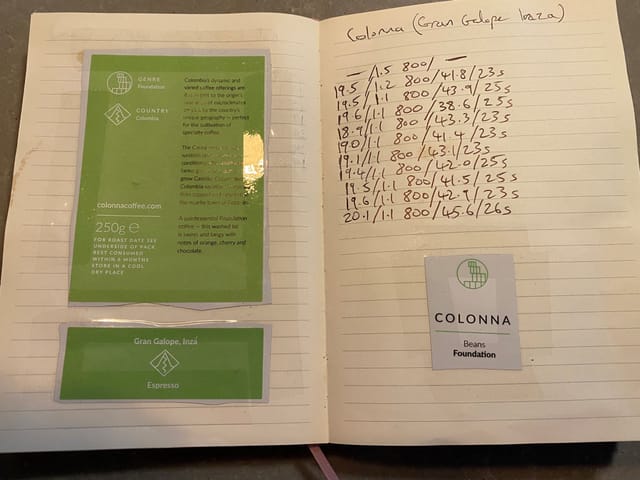 GENRE
Foundation
COUNTRY
Colombia
colonnacoffee.com
250g e
FOR ROAST DATE SEE
UNDERSIDE OF PACK
BEST CONSUMED
WITHIN 6 MONTHS
STORE IN A COOL
DRY PLACE
Colombia's dynamic and
varied coffee offerings are
to the origin's
of microclimates
the country's
unique geography – perfect
for the cultivation of
specialty coffee.
The
grow
Colombia
the nearby town of
A quintessential Foundation
coffee – this washed lot
is sweet and tangy with
notes of orange, cherry and
chocolate.
Gran Galope, Inzá
Espresso
Colonna (Gran Galope Inza)
— /1.5 800/ —
19.5 /1.2 800/41.8/23s
19.5/1.1 800/43.9/25s
19.6/1.1 800/38.6/25s
18.9/1.1 800/43.3/23s
19.0/1.1 800/41.4/23s
19.1/1.1 800/43.1/23s
19.4/1.1 800/42.0/25s
19.5/1.1 800/41.5/25s
19.6/1.1 800/42.9/23s
20.1/1.1 800/45.6/26s
COLONNA
Beans
Foundation